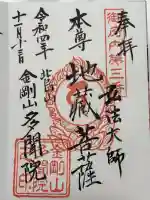 奉拝
弘法大師
本尊
地蔵菩薩
令和四年
十二月十三日
金剛山
多聞院